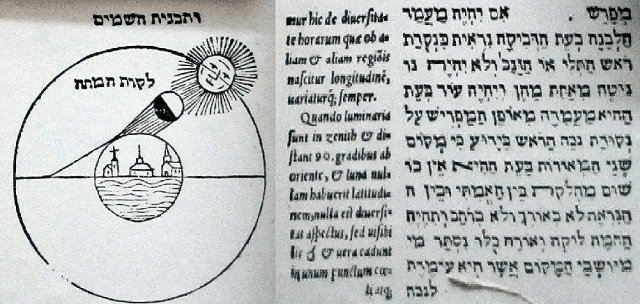 ותבנית השמים
לקות
mur hic de diuersita=
te horarum quæ ob a=
liam & aliam regiõis
nascitur longitudinẽ,
uariaturq; semper.
Quando luminaria
sunt in zenith & di=
stant 90. gradibus ab
oriente, & luna nul=
lam habuerit latitudi=
nem, nulla est diuersi=
tas aspectus, sed uisibi
lis ☌ & uera cadunt
in unum punctum cœ
מפרש . אם יהיה מעמד
הלבנה בעת הדביקה נראית בנקודת
ראש התלי או הזנב ולא יהיה
נטיה מאחת מהן ויהיה עוד בעת
ההיא מעמדה מאופן המפריש על
נקודת גבה הראש בידוע כי מקום
שני המאורות בעת ההיא אין בו
שום מחלוקת בין האמתי ובין ה
הנראה לא באורך ולא ברחב ותהיה
החמה לוקה ואורה כלו נסתר מי
מיושבי המקום אשר היא עומדת
לגבה